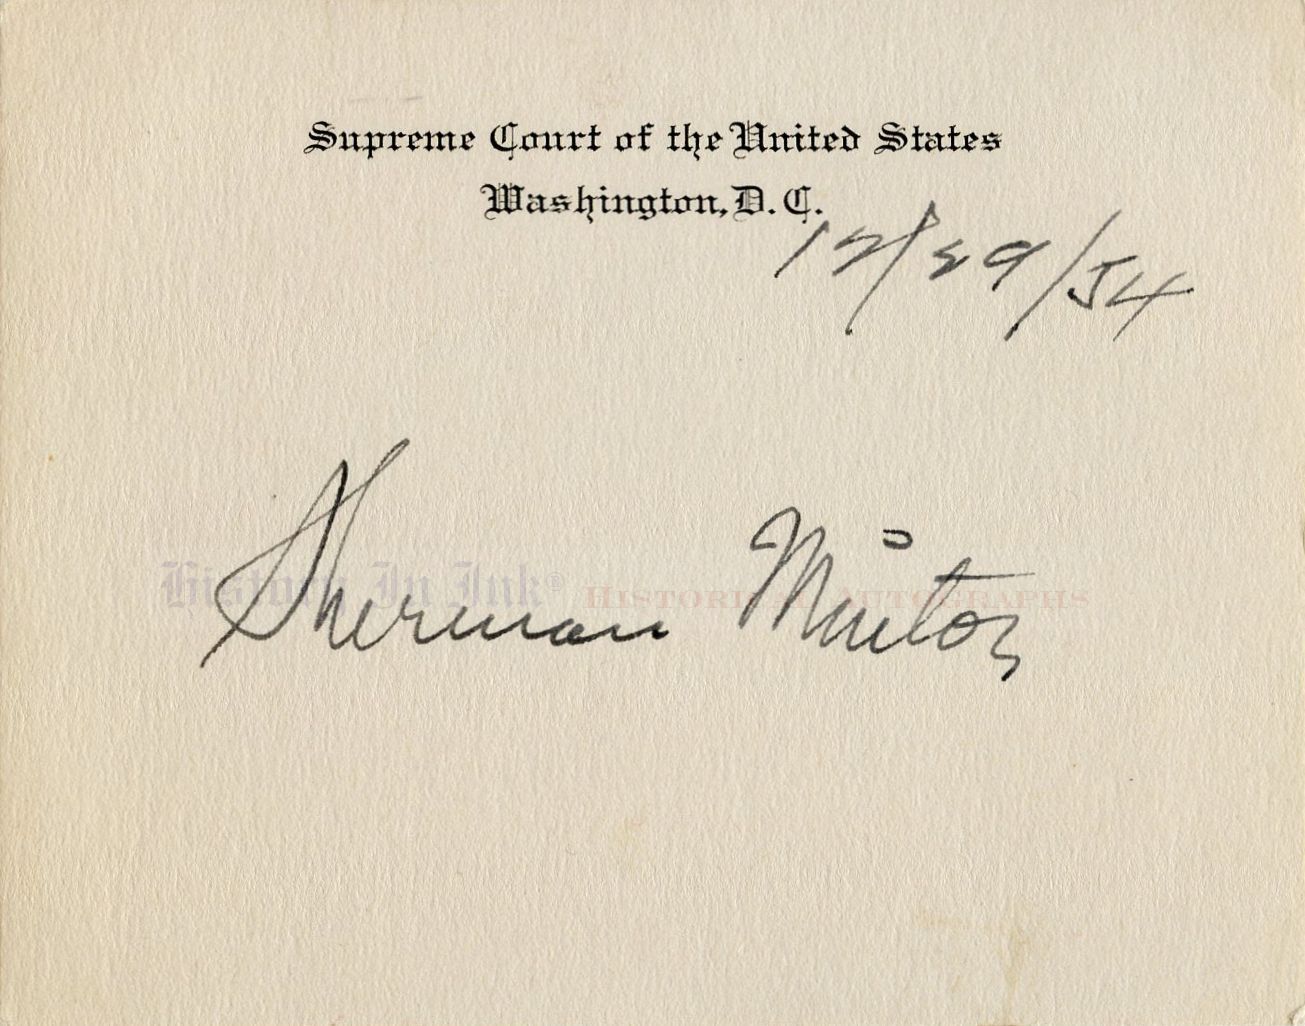 Supreme Court of the United States
Washington, D. C.
12/29/54
History In Ink® Historical Autographs
Sherman Minton